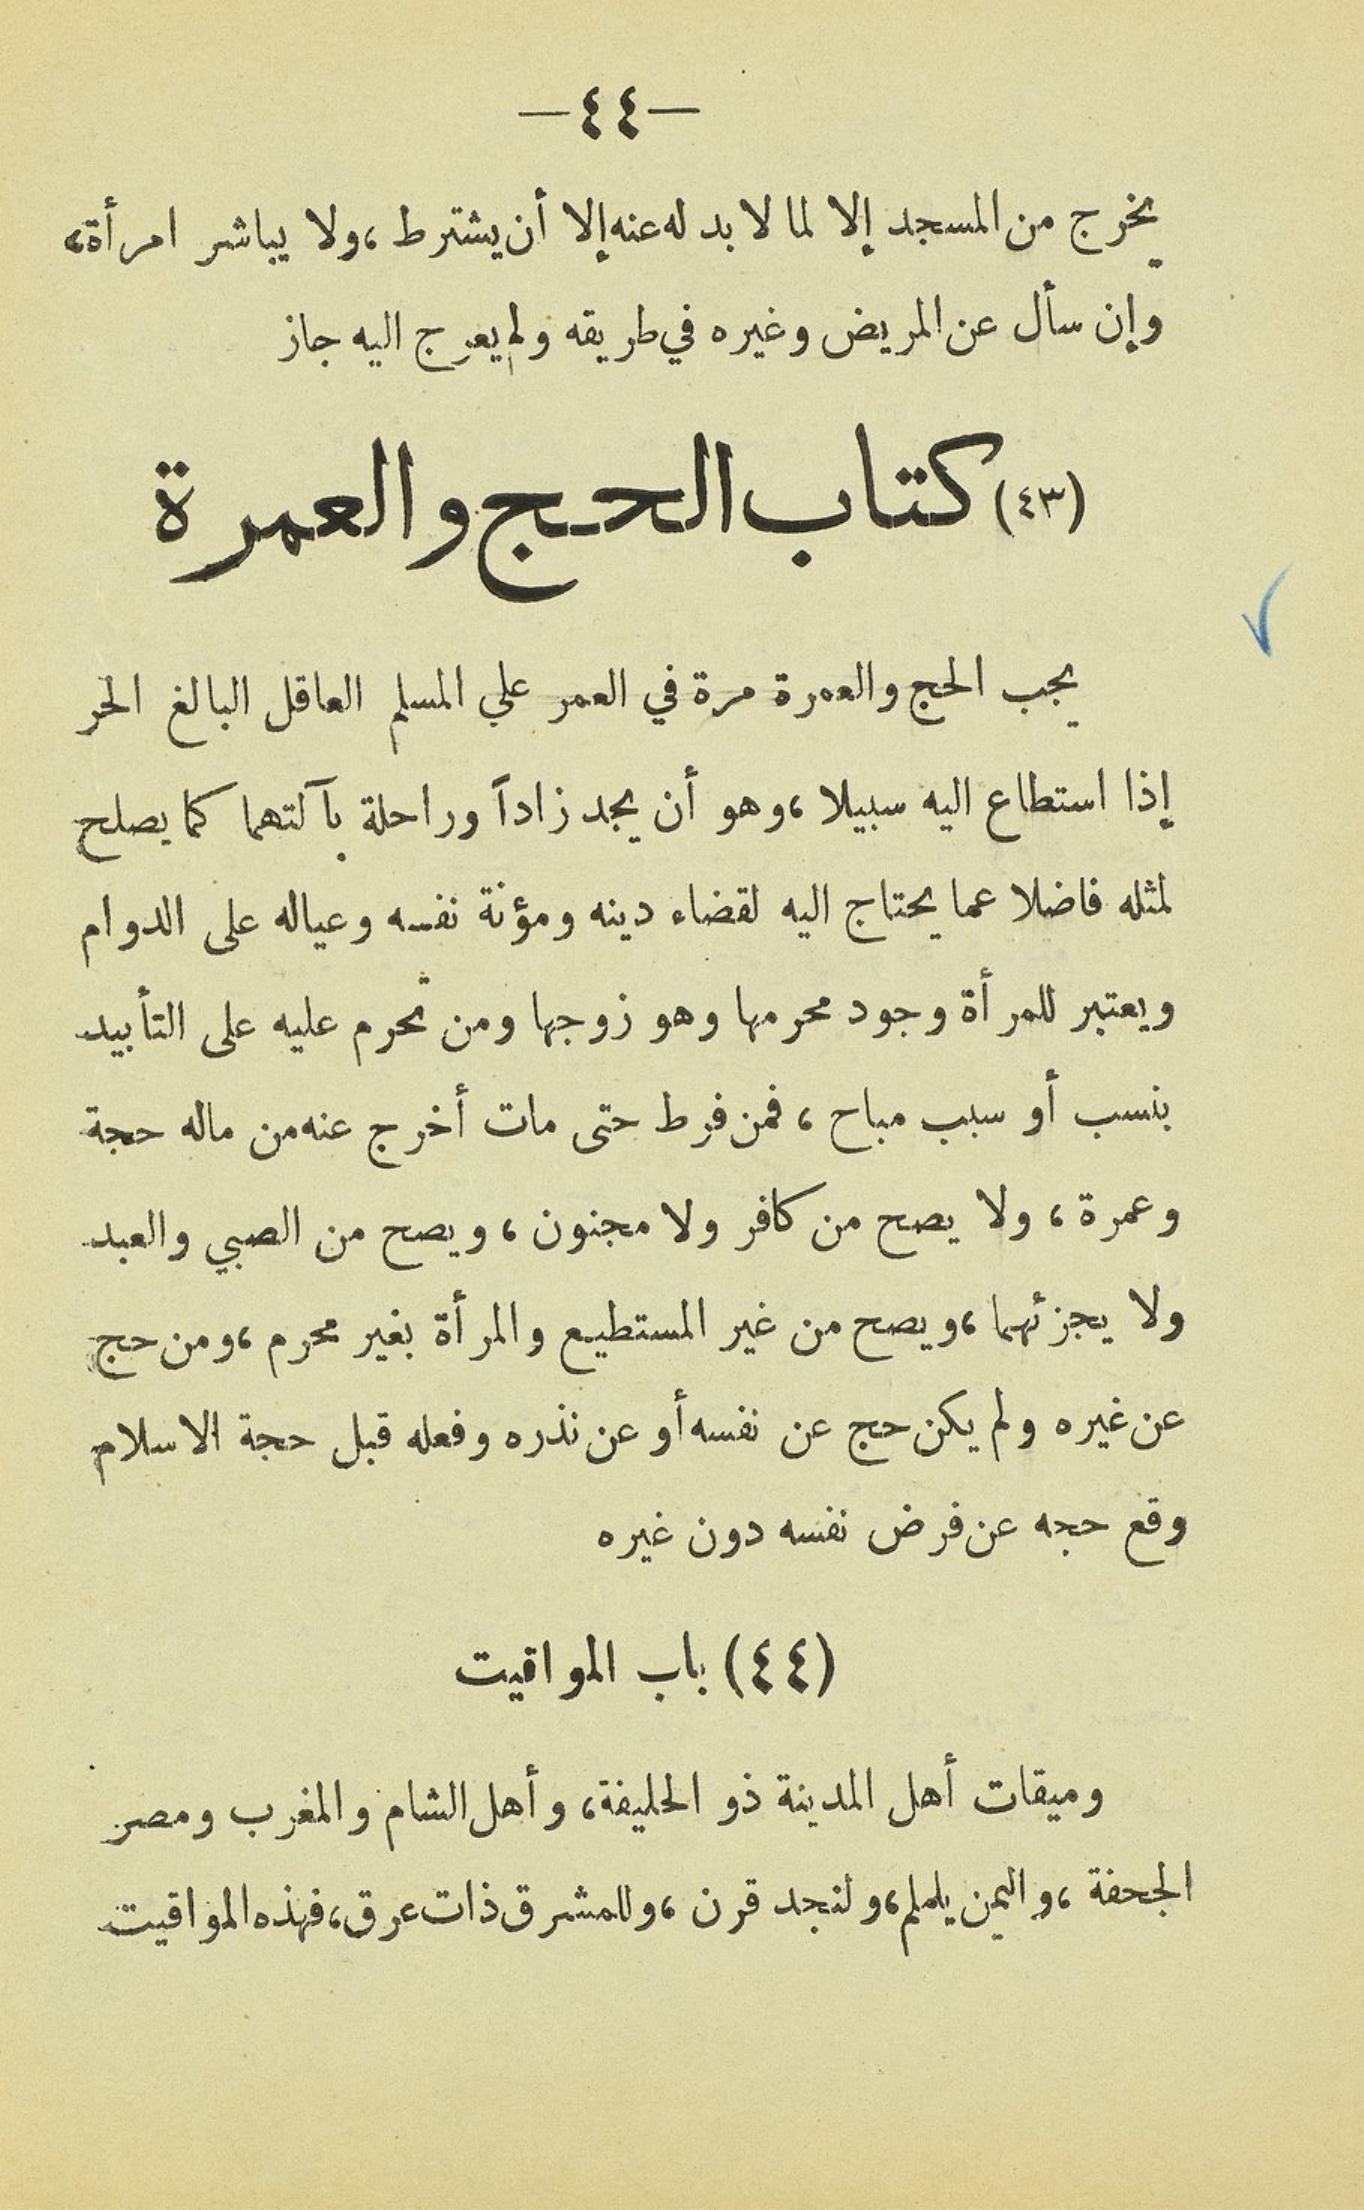 —٤٤—
يخرج من المسجد إلا لما لا بد له عنه إلا أن يشترط ، ولا يباشر امرأة ،
وإن سأل عن المريض وغيره في طريقه ولم يعرج اليه جاز
(٤٣) كتاب الحج والعمرة
يجب الحج والعمرة مرة في العمر علي المسلم العاقل البالغ الحر
إذا استطاع اليه سبيلا ، وهو أن يجد زاداً وراحلة بآلتهما كما يصلح
لمثله فاضلا عما يحتاج اليه لقضاء دينه ومؤنة نفسه وعياله على الدوام
ويعتبر للمرأة وجود محرمها وهو زوجها ومن تحرم عليه على التأبيد
بنسب أو سبب مباح ، فمن فرط حتى مات أخرج عنه من ماله حجة
وعمرة ، ولا يصح من كافر ولا مجنون ، ويصح من الصبي والعبد
ولا يجزئهما ، ويصح من غير المستطيع والمرأة بغير محرم ، ومن حج
عن غيره ولم يكن حج عن نفسه أو عن نذره وفعله قبل حجة الاسلام
وقع حجه عن فرض نفسه دون غيره
(٤٤) باب المواقيت
وميقات أهل المدينة ذو الحليفة ، وأهل الشام والمغرب ومصر
الجحفة ، واليمن يلملم ، ولنجد قرن ، وللمشرق ذات عرق ، فهذه المواقيت